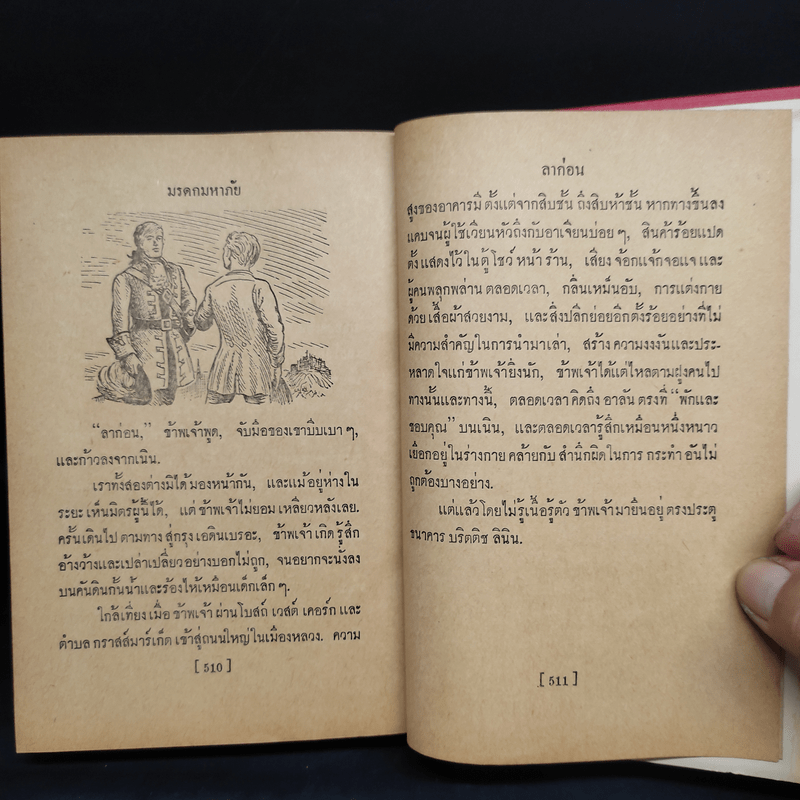 มรดกมหาภัย
“ลาก่อน,” ข้าพเจ้าพูด, จับมือของเขาบีบเบา ๆ,
และก้าวลงจากเนิน.
เราทั้งสองต่างมิได้มองหน้ากัน, และแม้อยู่ห่างใน
ระยะเห็นมิตรผู้นี้ได้, แต่ข้าพเจ้าไม่ยอมเหลียวหลังเลย.
ครั้นเดินไปตามทางสู่กรุงเอดินเบรอะ, ข้าพเจ้าเกิดรู้สึก
อ้างว้างและเปล่าเปลี่ยวอย่างบอกไม่ถูก, จนอยากจะนั่งลง
บนคันดินกั้นน้ำและร้องไห้เหมือนเด็กเล็ก ๆ.
ใกล้เที่ยงเมื่อข้าพเจ้าผ่านโบสถ์ เวสต์ เคอร์ก และ
ตำบล กราสส์มาร์เก็ต เข้าสู่ถนนใหญ่ในเมืองหลวง. ความ
[ 510 ]
ลาก่อน
สูงของอาคารมีตั้งแต่จากสิบชั้น ถึงสิบห้าชั้น หากทางขึ้นลง
แคบจนผู้ใช้เวียนหัวถึงกับอาเจียนบ่อย ๆ, สินค้าร้อยแปด
ตั้งแสดงไว้ในตู้โชว์หน้าร้าน, เสียงจ้อกแจ้กจอแจและ
ผู้คนพลุกพล่านตลอดเวลา, กลิ่นเหม็นอับ, การแต่งกาย
ด้วยเสื้อผ้าสวยงาม, และสิ่งปลีกย่อยอีกตั้งร้อยอย่างที่ไม่
มีความสำคัญในการนำมาเล่า, สร้างความงงงันและประ-
หลาดใจแก่ข้าพเจ้ายิ่งนัก, ข้าพเจ้าได้แต่ไหลตามฝูงคนไป
ทางนั้นและทางนี้, ตลอดเวลาคิดถึง อาลัน ตรงที่ “พักและ
ขอบคุณ” บนเนิน, และตลอดเวลารู้สึกเหมือนหนึ่งหนาว
เยือกอยู่ในร่างกาย คล้ายกับ สำนึกผิดในการ กระทำ อันไม่
ถูกต้องบางอย่าง.
แต่แล้วโดยไม่รู้เนื้อรู้ตัว ข้าพเจ้ามายืนอยู่ตรงประตู
ธนาคาร บริตติช ลินิน.
[ 511 ]